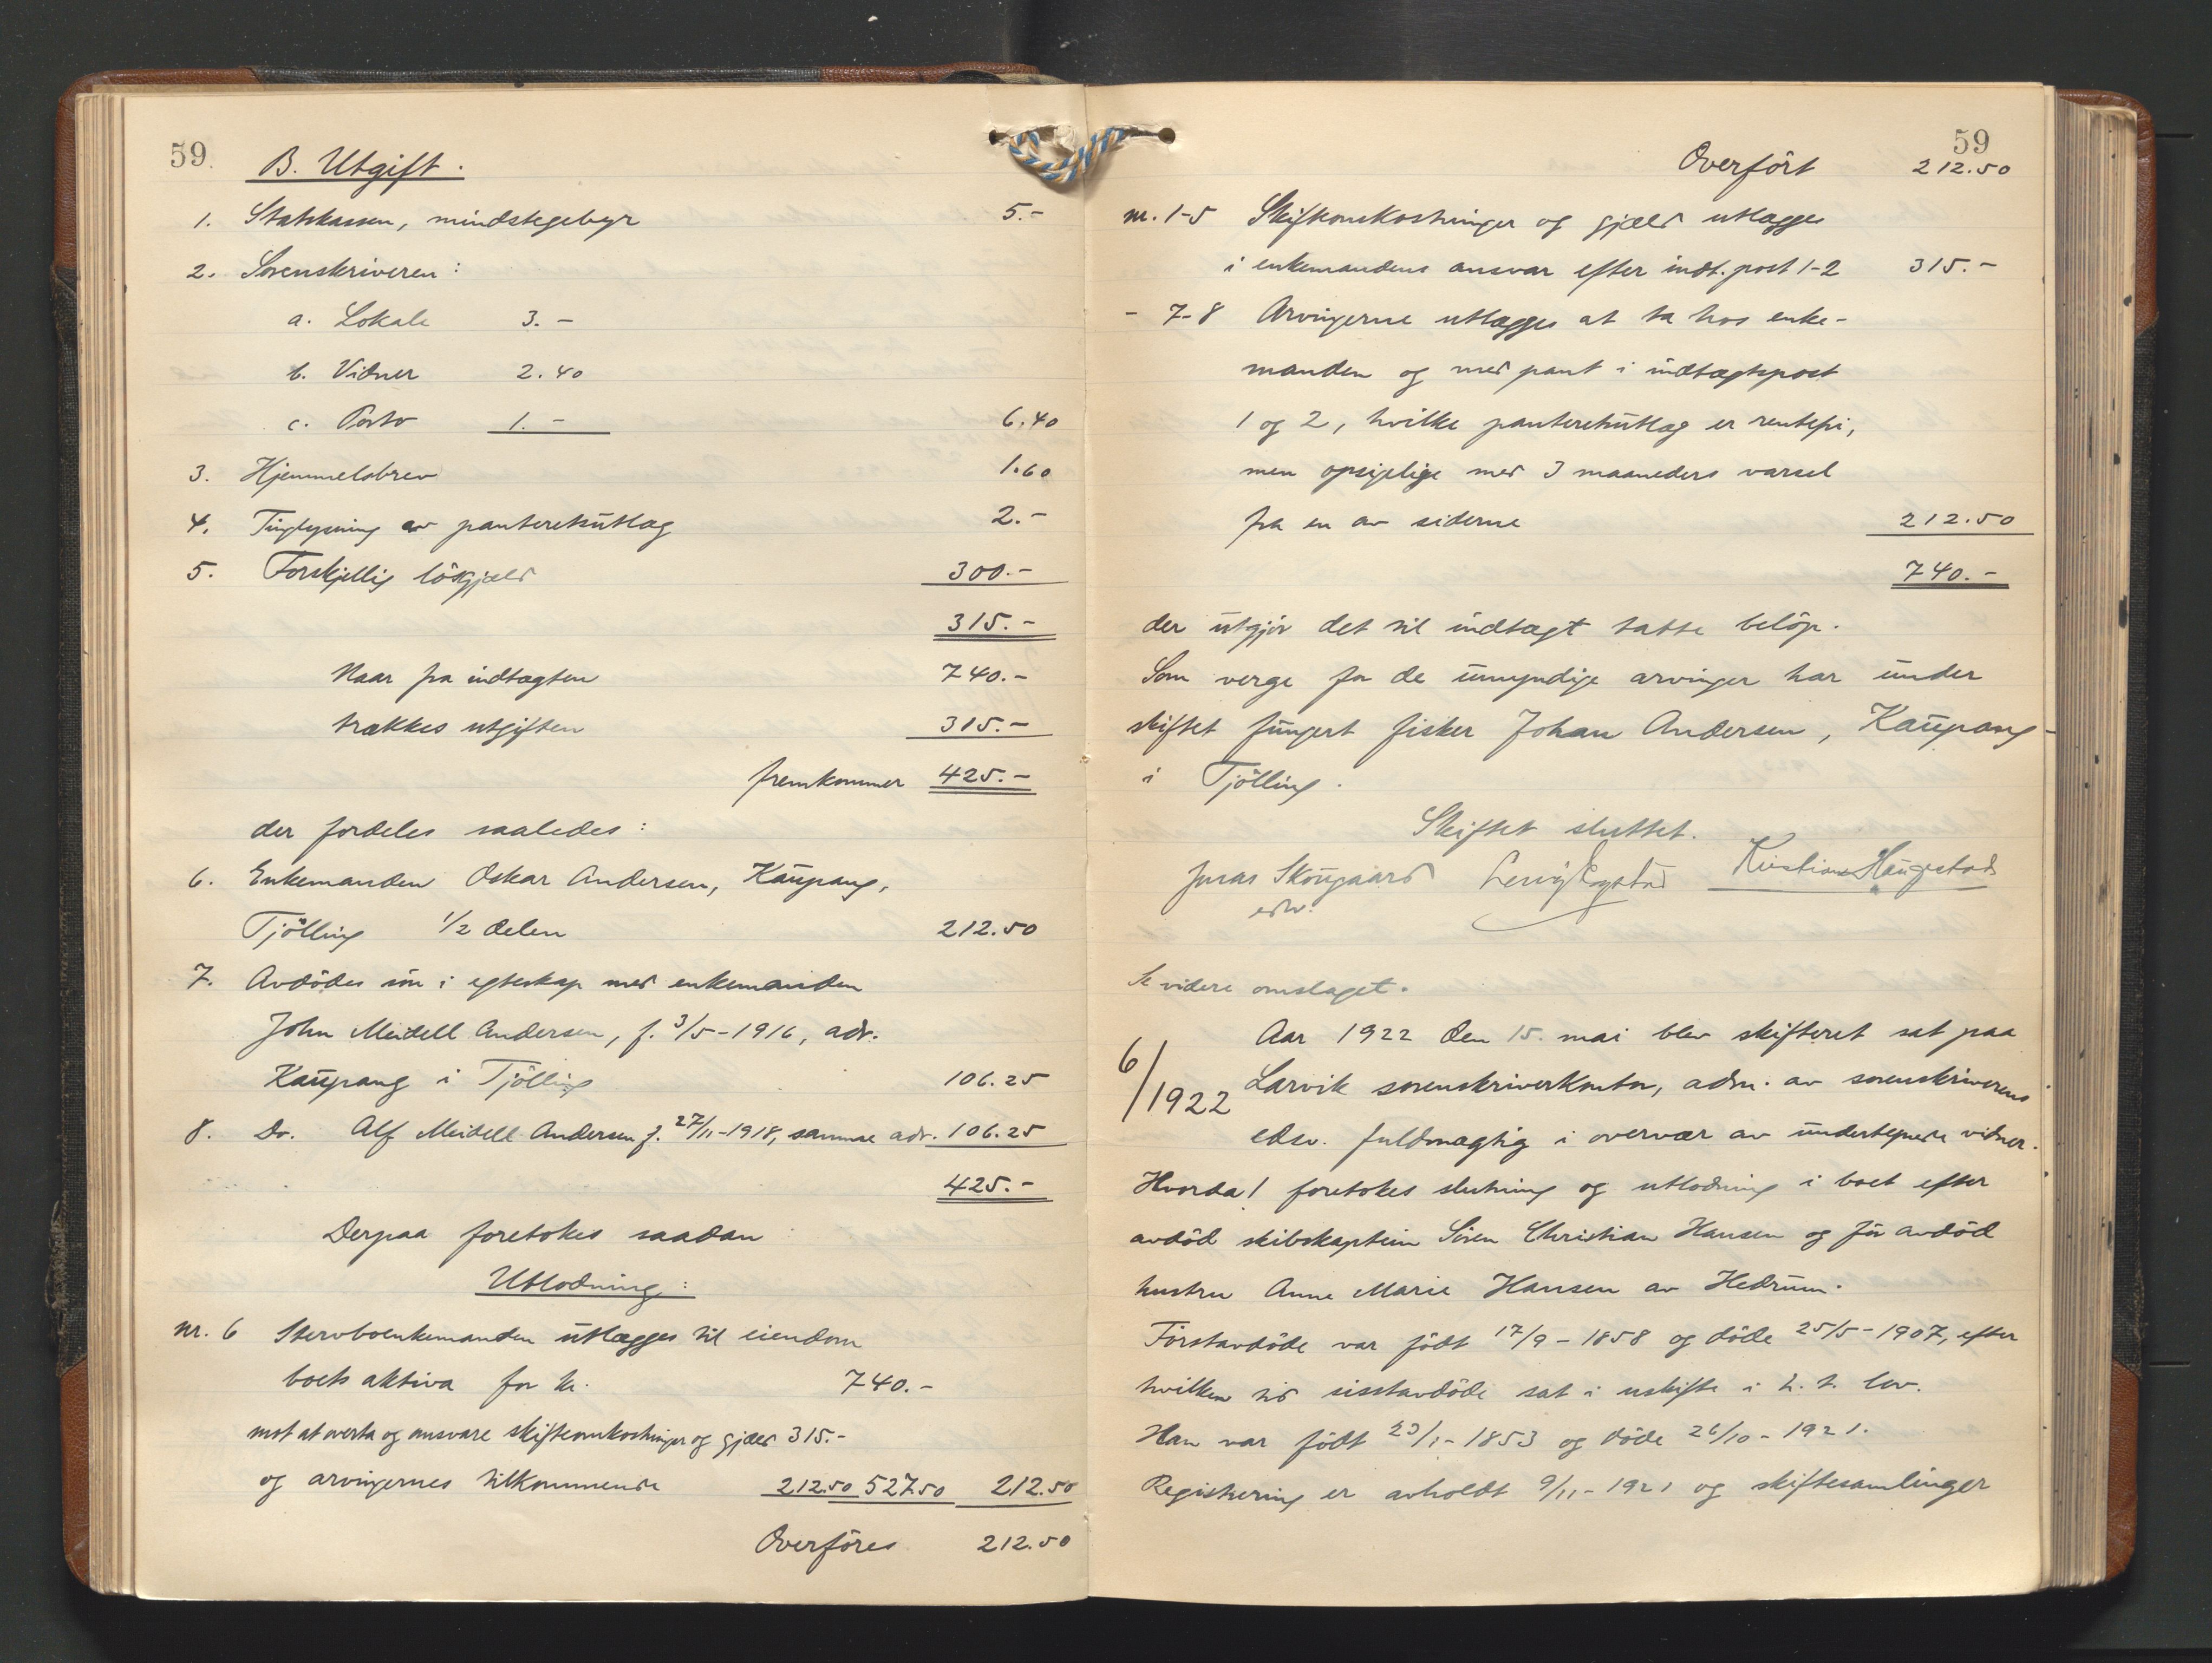 59.
B. Utgift.
1. Statskassen, mindstegebyr 5.-
2. Sorenskriveren:
a. Lokale 3.-
b. Vidner 2.40
c. Porto 1.- 6.40
3. Hjemmelsbrev 1.60
4. Tinglysning av panteretsutlæg 2.-
5. Forskjellig løsgjæld 300.-
315.-
Naar fra indtægten 740.-
trækkes utgiften 315.-
fremkommer 425.-
der fordeles saaledes:
6. Enkemanden Oskar Andersen, Kaupang,
Tjølling 1/2 delen 212.50
7. Avdødes søn i egteskap med enkemanden
John Meidell Andersen, f. 3/5-1916, adr.
Kaupang i Tjølling 106.25
8. Do. Alf Meidell Andersen f. 27/11-1918, samme adr. 106.25
425.-
Derpaa foretokes saadan
Utlodning:
nr. 6 Stervboenkemanden utlægges til eiendom
boets aktiva for kr. 740.-
mot at overta og ansvare skifteomkostninger og gjæld 315.-
og arvingernes tilkommende 212.50 527.50 212.50
Overføres 212.50
59
Overført 212.50
nr. 1-5 Skifteomkostninger og gjæld utlægges
i enkemandens ansvar efter indt. post 1-2 315.-
- 7-8 Arvingerne utlægges at ta hos enke-
manden og med pant i indtægtspost
1 og 2, hvilke panteretsutlæg er rentefri,
men opsigelige med 3 maaneders varsel
fra en av siderne 212.50
740.-
der utgjør det til indtægt tatte beløp.
Som verge for de umyndige arvinger har under
skiftet fungert fisker Johan Andersen, Kaupang
i Tjølling.
Skiftet sluttet.
Jonas Skougaard Kristian Haugestad
edsv.
Se videre omslaget.
Aar 1922 den 15. mai blev skifteret sat paa
6/1922 Larvik sorenskriverkontor, adm. av sorenskriverens
edsv. fuldmægtig i overvær av undertegnede vidner.
Hvorda! foretokes slutning og utlodning i boet efter
avdød skibskaptein Søren Christian Hansen og før avdød
hustru Anne Marie Hansen av Hedrum.
Førstavdøde var født 17/9-1858 og døde 25/5-1907, efter
hvilken tid sisstavdøde sat i uskifte i h. t. lov.
Han var født 23/1-1853 og døde 26/10-1921.
Registrering er avholdt 9/11-1921 og skiftesamlinger